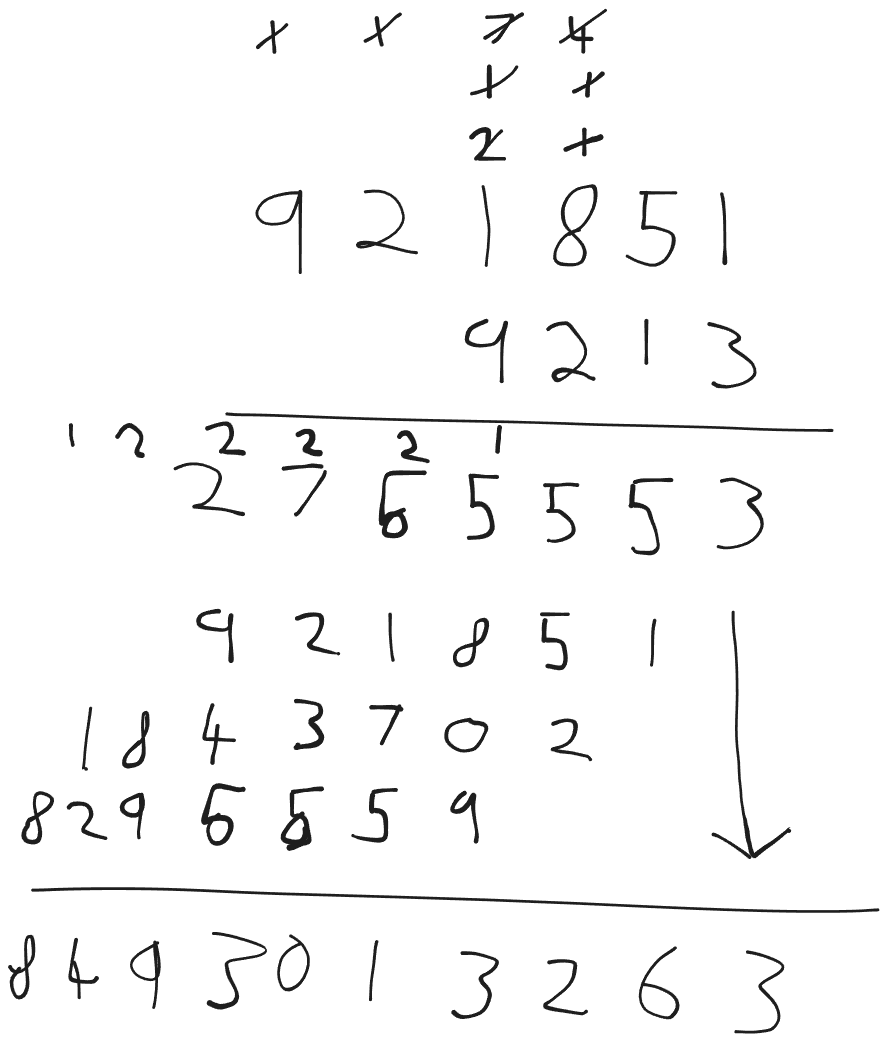 1 1 7 4
1 1
2 1
9 2 1 8 5 1
9 2 1 3
1 2 2 2 2 1
2 7 6 5 5 5 3
9 2 1 8 5 1
1 8 4 3 7 0 2
8 2 9 6 6 5 9
8 4 9 3 0 1 3 2 6 3